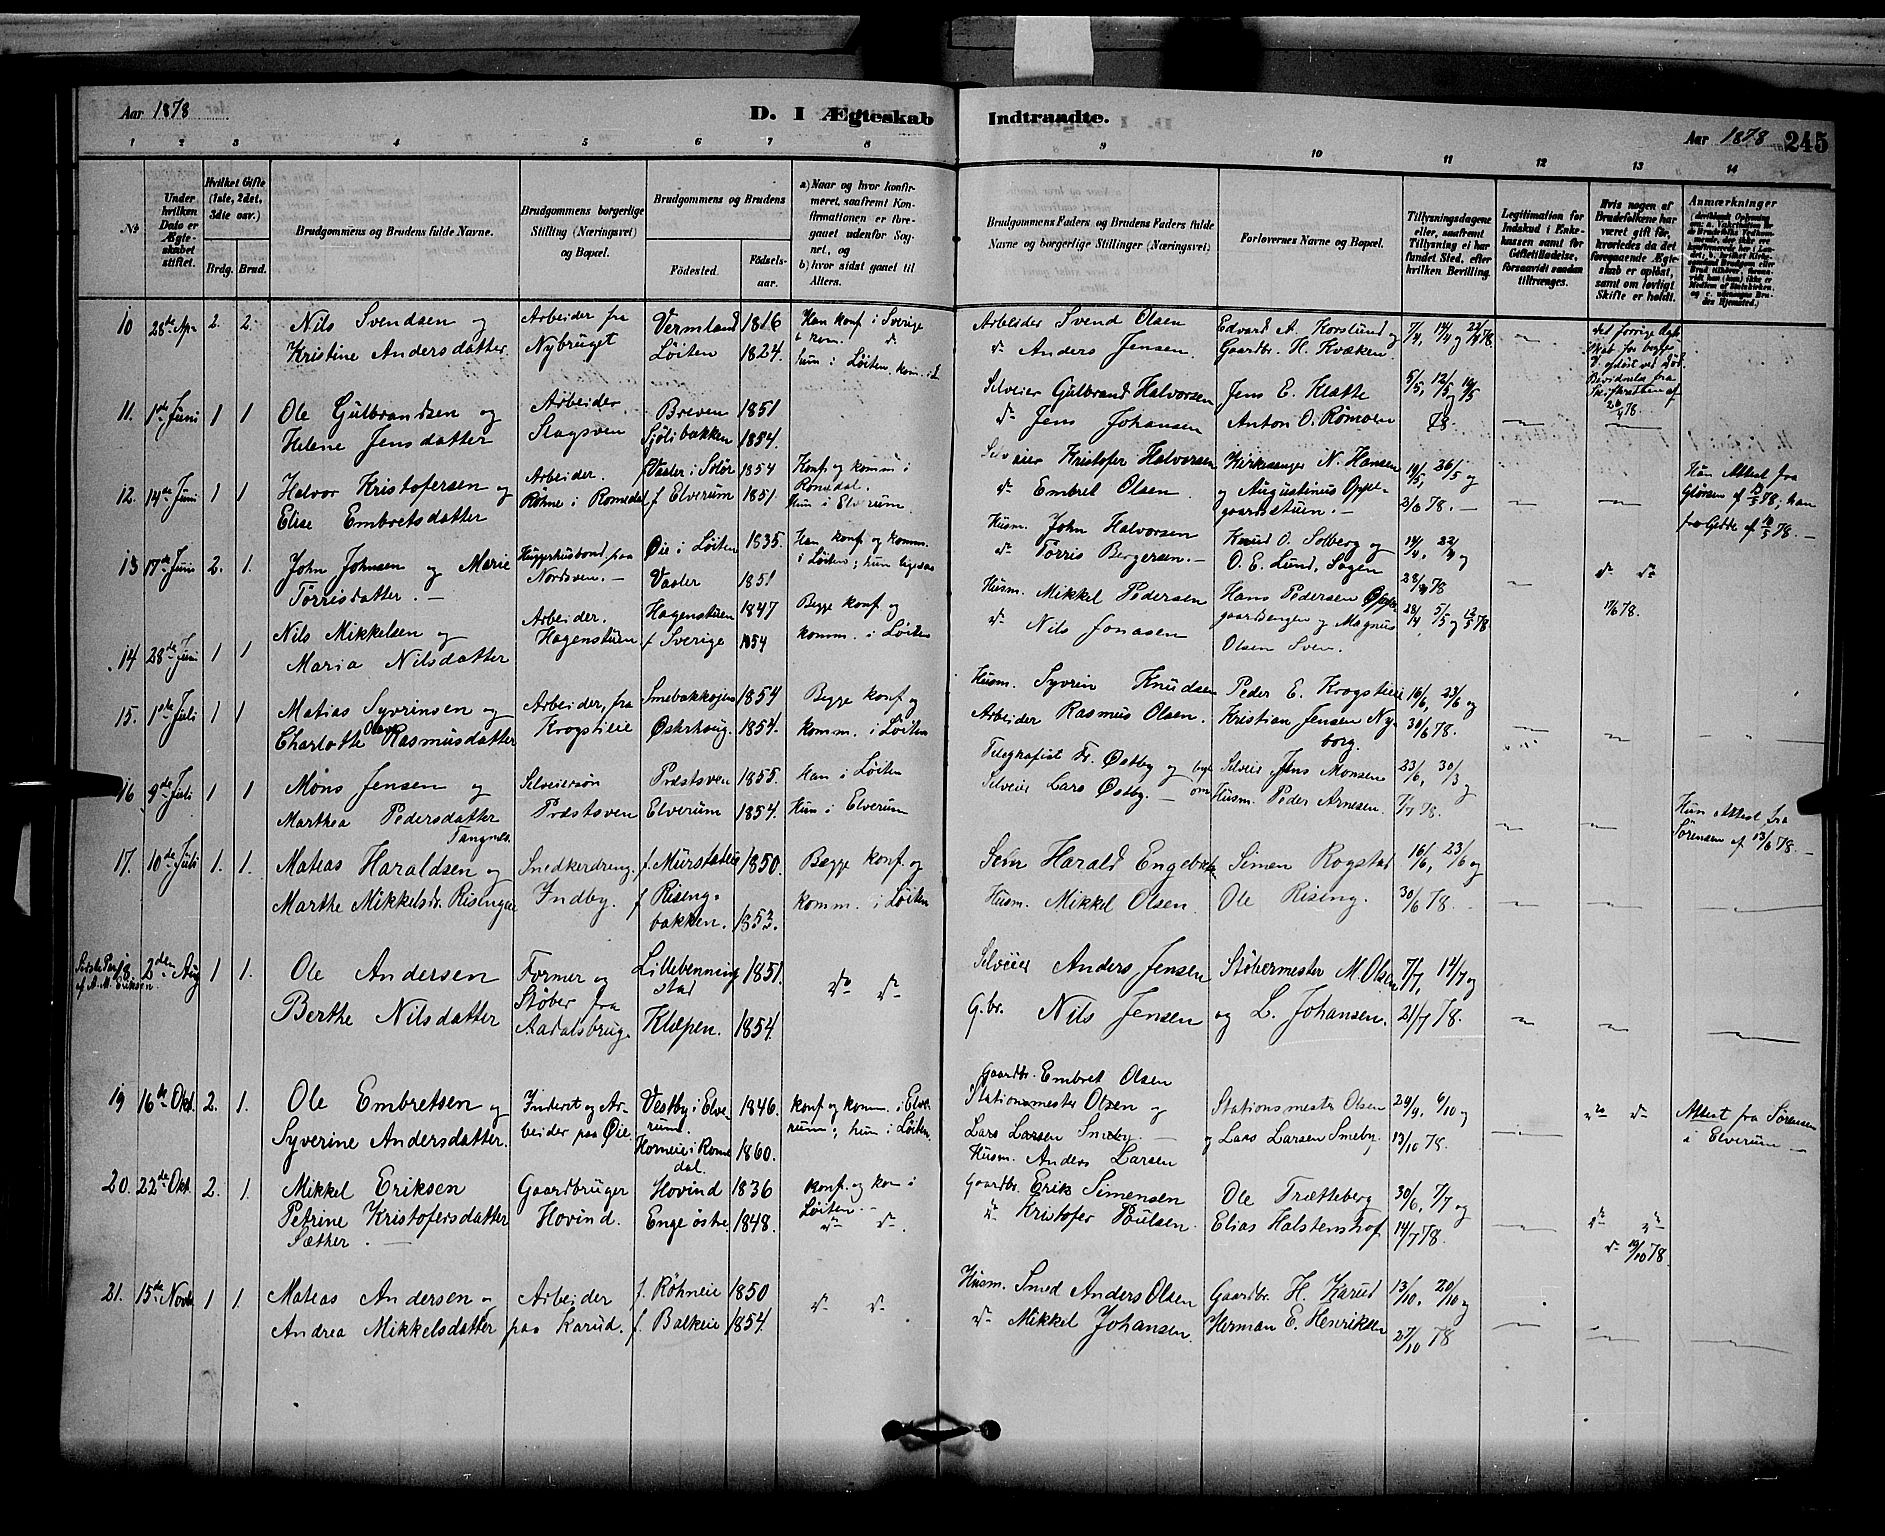 Aar 1878
D. I Ægteskab Indtraadte.
Aar 1878 245
1 2 3 4 5 6 7 8 9 10 11 12 13 14
№
Under hvilken Dato er Ægteskabet stiftet.
Hvilket Gifte (1ste, 2det, 3die osv.)
Brdg. Brud.
Brudgommens og Brudens fulde Navne.
Brudgommens borgerlige Stilling (Næringsvei) og Bopæl.
Brudgommens og Brudens
Fødested. Fødselsaar.
a) Naar og hvor konfirmeret, saafremt Konfirmationen er foregaaet udenfor Sognet, og
b) hvor sidst gaaet til Alters.
Brudgommens Faders og Brudens Faders fulde Navne og borgerlige Stillinger (Næringsvei)
Forlovernes Navne og Bopæl.
Tillysningsdagene eller, saafremt Tillysning ei har fundet Sted, efter hvilken Bevilling.
Legitimation for Indskud i Enkekassen samt for Giftetilladelse, forsaavidt saadan tiltrænges.
Hvis nogen af Brudefolkene har været gift før, hvorledes da det foregaaende Ægteskab er opløst, samt om lovligt Skifte er holdt.
Anmærkninger
10 28de Apr 2. 2. Nils Svendsen og Arbeider fra Vermland 1816 Han konf. i Sverige
Kristine Andersdatter. Nybruget Løiten 1824. kom. do hun i Løiten, kom. i L
Arbeider Svend Olsen Edvard A. Korslund og 7/4, 14/4 og 22/4 78
do Anders Jensen. Gaardbr. H. Kvæken
det forrige Ægteskab for begge opløst ved Død. Bevidnelse fra Skifteretten af
11. 1ste Juni 1 1 Ole Gulbrandsen og Arbeider Breven 1851
Helene Jensdatter Slagsven Sjølibakken 1854.
Selveier Gulbrand Halvorsen Jens E. Klatte 5/5, 12/5 og 19/5
do Jens Johansen Anton O. Rømoen 78.
12. 14de Juni 1 1 Halvor Kristofersen og Arbeider. Vaaler i Solør 1854 Konf. og komm. i Romedal.
Elise Embretsdatter Røhne i Romedal f. Elverum 1851. Hun i Elverum.
Selveier Kristofer Halvorsen Kirkesanger N. Hansen 19/5, 26/5 og
do Embret Olsen og Augustinus Oppegaardstuen. 2/6 78.
Hun Attest fra
af 78, han
fra Gedde af 78.
13 17de Juni 2. 1. John Johnsen og Marie Huggerhusbond paa Øie i Løiten 1835. Han konf. og komm.
Torrisdatter. Nordsven. Vaaler 1851 i Løiten; hun ligesaa
Husm. John Halvorsen Knud O. Solberg og 14/4, 22/4 og
do Torris Bergersen. O. E. Lund, Sagen 28/4 78
do do 17/6 78.
14 28de Juni 1 1 Nils Mikkelsen og Arbeider. Hagenstuen 1847 Begge konf. og
Maria Nilsdatter Hagenstuen f. Sverige 1854 komm. i Løiten
Husm. Mikkel Pedersen Hans Pedersen Oppegaardengen og Magnus 28/4, 5/5 og 12/5 78
do Nils Jonasen Olsen Sven.
15. 1ste Juli 1 1 Matias Syvrinsen og Arbeider, fra Smebakkøien 1854 Begge konf. og
Charlotte Olava Rasmusdatter Krogstieie Østerhaug. 1854. komm. i Løiten
Husm. Syvrin Knudsen Peder E. Krogstieie 16/6, 23/6 og
Arbeider Rasmus Olsen. Kristian Jensen Nyborg. 30/6 78.
16 9de Juli 1 1 Møns Jensen og Selveiersøn Præstsven 1855. Han i Løiten
Marthea Pedersdatter Tangnes. Præstsven Elverum 1854. Hun i Elverum
Telegrafist Fr. Østby og Selveier Jens Monsen 23/6, 30/3 og
Selveier Lars Østby. Husm. Peder Arnesen. 7/7 78.
Hun Attest fra
Sørensen af 13/6 78.
17. 10de Juli 1. 1. Matias Haraldsen og Snedkerdreng. f. Murstadeie 1850. Begge konf. og
Marthe Mikkelsdr. Risingeie Indby. f. Risengbakken. 1853. komm. i Løiten
Harald Engebretsen Simen Rogstad 16/6, 23/6 og
Husm. Mikkel Olsen. Ole Rising. 30/6 78.
18. 2den Aug 1 1. Ole Andersen Former og Lillebenningstad 1851. do do
Berthe Nilsdatter Støber fra Aadalsbrug. Klæpen. 1854.
Selveier Anders Jensen Støbermester M. Olsen 7/7, 14/7 og
G.br. Nils Jensen og L. Johansen. 21/7 78.
19 16de Okt. 2. 1. Ole Embretsen og Inderst og Ar- Vestby i Elverum. 1846. konf. og komm. i Elverum; hun i Løiten.
Syverine Andersdatter. beider paa Øie. Horneie i Romedal. 1860.
Gaardbr. Embret Olsen
Stationsmester Olsen og Stationsmester Olsen 29/9, 6/10 og
Lars Larsen Smeby. og Lars Larsen Smeby. 13/10 78.
Husm. Anders Larsen
do do Attest fra Sørensen
i Elverum
20. 22de Okt. 2. 1. Mikkel Eriksen Gaardbruger Hovind 1836 konf. og kom i Løiten.
Petrine Kristofersdatter Hovind. Enge østre 1848. do do.
Sæther.
Gaardbr. Erik Simensen Ole Trætteberg 30/6, 7/7 og
do Kristofer Poulsen. Elias Halstenshof 14/7 78.
do do
do 19/10 78.
21. 15de Novb 1 1. Matias Andersen og Arbeider f. Røhneie 1850 do do
Andrea Mikkelsdatter paa Karud. f. Balkeie 1854.
Husm. Smed Anders Olsen Gaardbr. H. Karud 13/10, 20/10 og
do Mikkel Johansen. Herman E. Henriksen 27/10 78